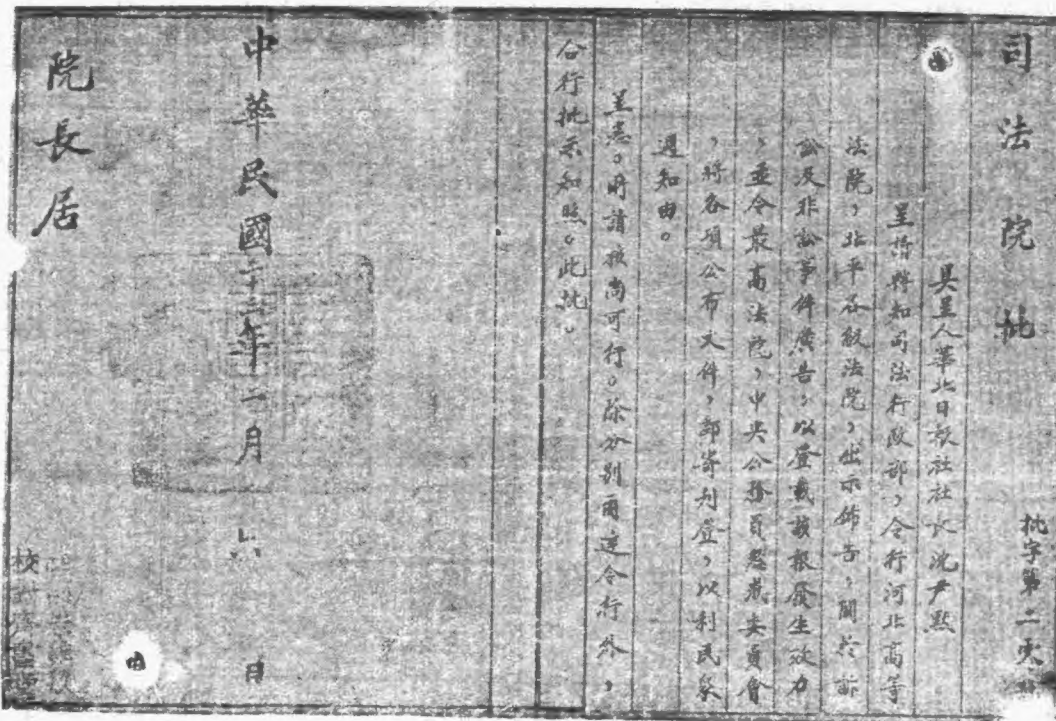 司法院批
批字第二
具呈人華北日報社社長沈尹默
呈請轉知司法行政部,令行河北高等
法院,北平各級法院,出示佈告,關於訴
訟及非訟事件廣告,以登載該報發生效力
,並令最高法院,中央公務員懲戒委員會
,將各項公布文件,郵寄刊登,以利民衆
週知由。
呈悉。所請核尚可行。除分別函達令行外,
合行批示知照。此批。
中華民國二十二年一月六日
院長居
校對